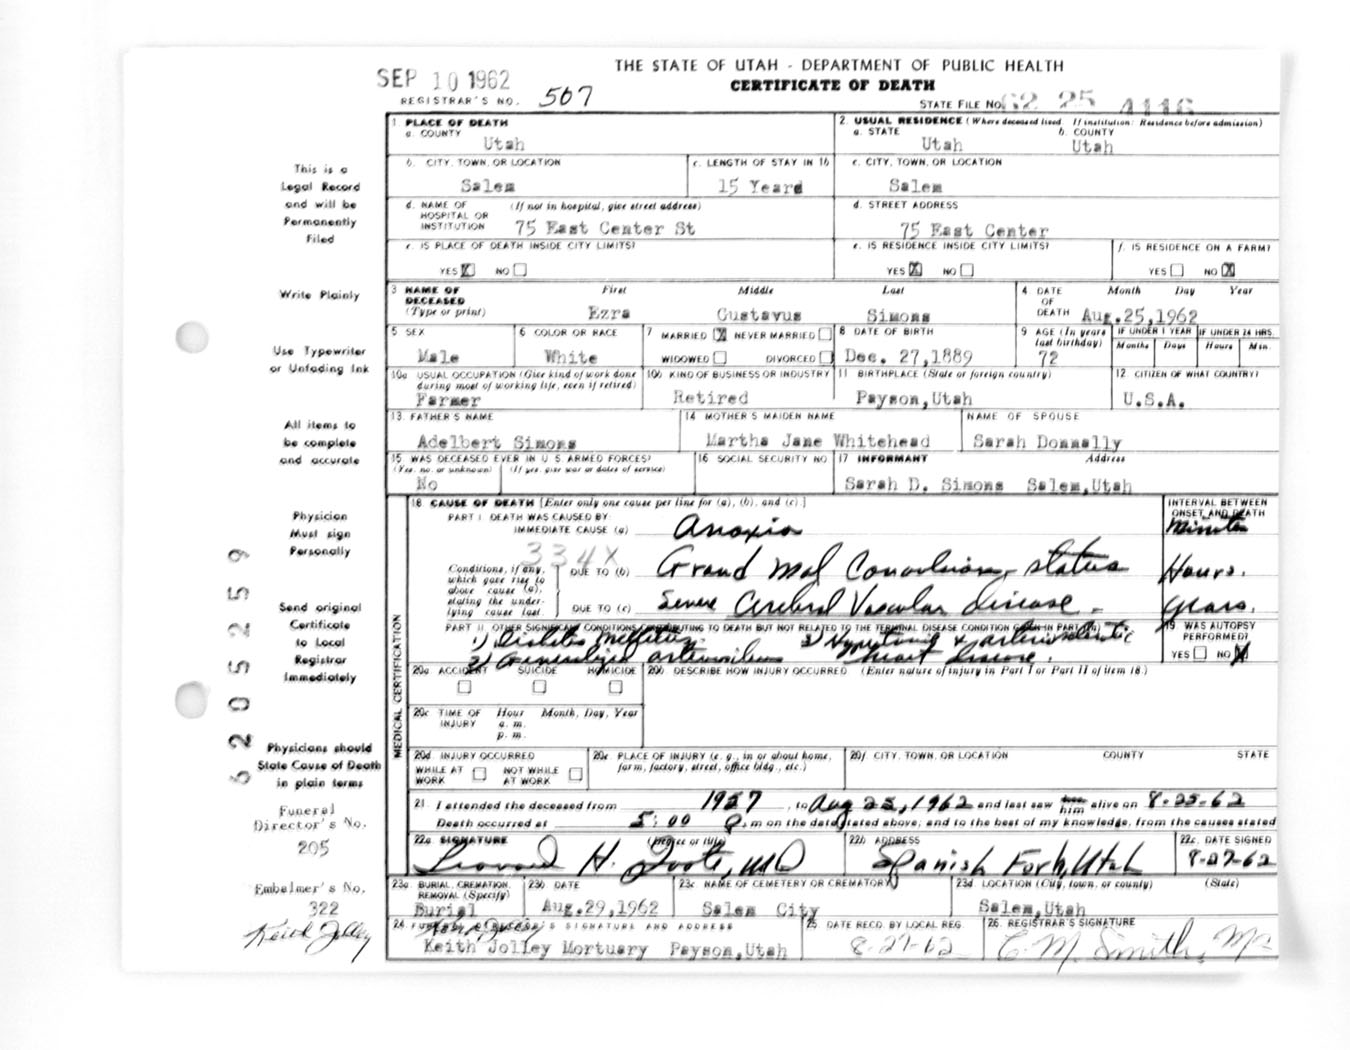 THE STATE OF UTAH - DEPARTMENT OF PUBLIC HEALTH
SEP 10 1962
CERTIFICATE OF DEATH
REGISTRAR'S NO. 507
STATE FILE No. 62 25 4116
1 PLACE OF DEATH
a. COUNTY
Utah
2. USUAL RESIDENCE (Where deceased lived. If institution: Residence before admission)
a. STATE b. COUNTY
Utah Utah
b. CITY, TOWN, OR LOCATION
Salem
c. LENGTH OF STAY IN 1b
15 Years
c. CITY, TOWN, OR LOCATION
Salem
d. NAME OF (If not in hospital, give street address)
HOSPITAL OR
INSTITUTION 75 East Center St
d. STREET ADDRESS
75 East Center
e. IS PLACE OF DEATH INSIDE CITY LIMITS?
YES X NO
e. IS RESIDENCE INSIDE CITY LIMITS?
YES X NO
f. IS RESIDENCE ON A FARM?
YES NO X
3 NAME OF DECEASED (Type or print)
First Middle Last
Ezra Gustavus Simons
4. DATE OF DEATH Month Day Year
Aug.25,1962
5 SEX
Male
6 COLOR OR RACE
White
7 MARRIED X NEVER MARRIED
WIDOWED DIVORCED
8 DATE OF BIRTH
Dec. 27,1889
9 AGE (In years last birthday)
72
IF UNDER 1 YEAR
Months Days
IF UNDER 24 HRS.
Hours Min.
10a USUAL OCCUPATION (Give kind of work done during most of working life, even if retired)
Farmer
10b KIND OF BUSINESS OR INDUSTRY
Retired
11 BIRTHPLACE (State or foreign country)
Payson,Utah
12. CITIZEN OF WHAT COUNTRY?
U.S.A.
13. FATHER'S NAME
Adelbert Simons
14 MOTHER'S MAIDEN NAME
Martha Jane Whitehead
NAME OF SPOUSE
Sarah Donnally
15 WAS DECEASED EVER IN U.S. ARMED FORCES?
(Yes, no, or unknown) (If yes, give war or dates of service)
No
16 SOCIAL SECURITY NO
17 INFORMANT Address
Sarah D. Simons Salem,Utah
MEDICAL CERTIFICATION
18 CAUSE OF DEATH [Enter only one cause per line for (a), (b), and (c).]
INTERVAL BETWEEN ONSET AND DEATH
PART I. DEATH WAS CAUSED BY:
IMMEDIATE CAUSE (a) Anoxia minutes
334X
Conditions, if any, which gave rise to above cause (a), stating the underlying cause last.
DUE TO (b) Grand Mal Convulsions, status Hours.
DUE TO (c) Severe Cerebral Vascular disease. years.
PART II. OTHER SIGNIFICANT CONDITIONS CONTRIBUTING TO DEATH BUT NOT RELATED TO THE TERMINAL DISEASE CONDITION GIVEN IN PART I(a)
1) Diabetes Mellitus
2) Generalized
heart disease.
19. WAS AUTOPSY PERFORMED?
YES NO X
20a ACCIDENT SUICIDE HOMICIDE
20b. DESCRIBE HOW INJURY OCCURRED (Enter nature of injury in Part I or Part II of item 18.)
20c TIME OF INJURY Hour Month, Day, Year
a. m.
p. m.
20d INJURY OCCURRED
WHILE AT WORK NOT WHILE AT WORK
20e PLACE OF INJURY (e. g., in or about home, farm, factory, street, office bldg., etc.)
20f CITY, TOWN, OR LOCATION COUNTY STATE
21. I attended the deceased from 1957, to Aug 25, 1962 and last saw him alive on 8-25-62
Death occurred at 5:00 P. m on the date stated above; and to the best of my knowledge, from the causes stated
22a SIGNATURE (Degree or title)
Leonard H. Foote, MD
22b ADDRESS
Spanish Fork, Utah
22c. DATE SIGNED
8-27-62
23a. BURIAL, CREMATION, REMOVAL (Specify)
Burial
23b. DATE
Aug.29,1962
23c NAME OF CEMETERY OR CREMATORY
Salem City
23d. LOCATION (City, town, or county) (State)
Salem,Utah
24. FUNERAL DIRECTOR'S SIGNATURE AND ADDRESS
Keith Jolley Mortuary Payson,Utah
25 DATE RECD. BY LOCAL REG.
8-27-62
26. REGISTRAR'S SIGNATURE
C.M. Smith,
This is a
Legal Record
and will be
Permanently
Filed
Write Plainly
Use Typewriter
or Unfading Ink
All items to
be complete
and accurate
Physician
Must sign
Personally
Send original
Certificate
to Local
Registrar
Immediately
Physicians should
State Cause of Death
in plain terms
Funeral
Director's No.
205
Embalmer's No.
322
Keith Jolley
6205 5259